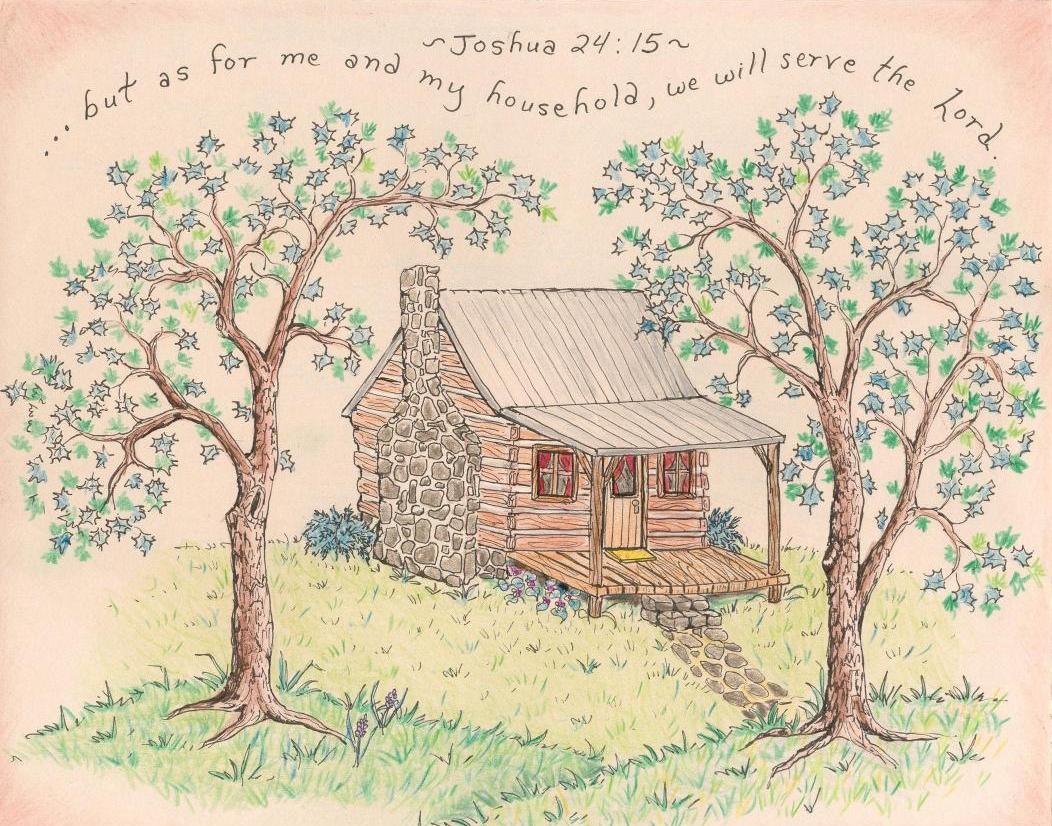 ~Joshua 24:15~
...but as for me and my household, we will serve the Lord.